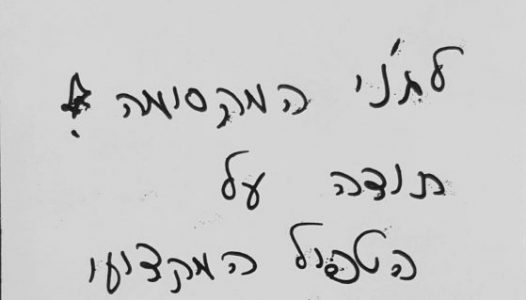 המקסימה !
תודה על
הטפול המקצועי